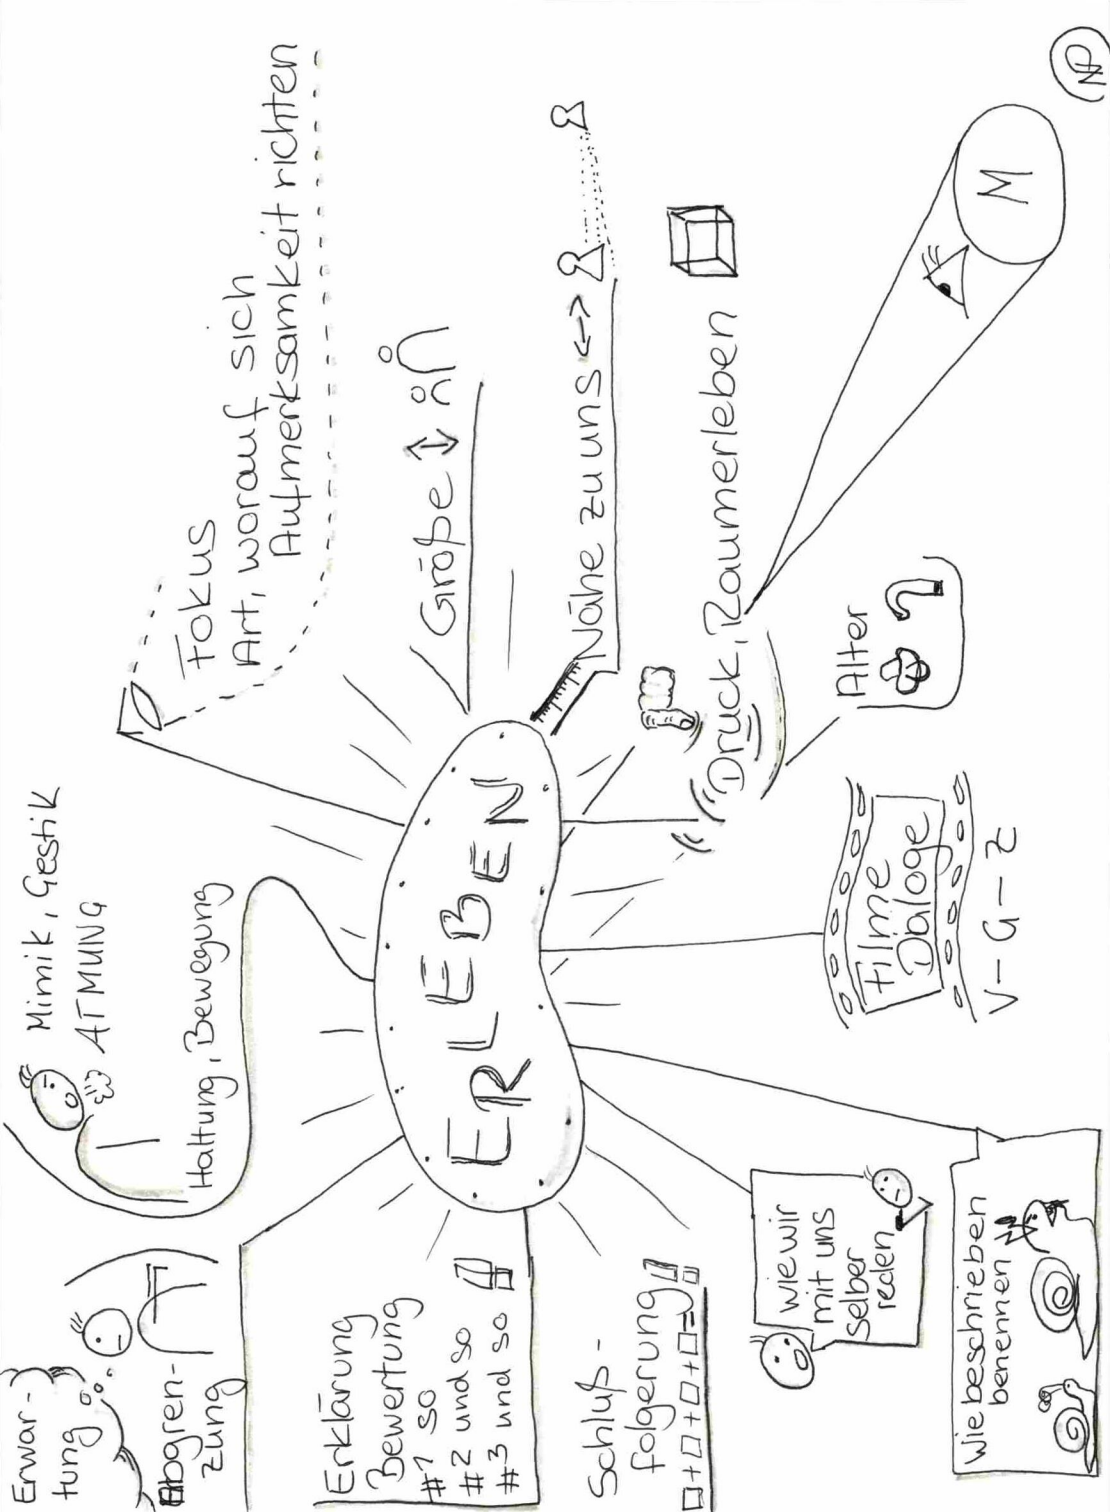 Erwar-
tung
Abgren-
zung
Mimik, Gestik
ATMUNG
Haltung, Bewegung
Fokus
Art, worauf sich
Aufmerksamkeit richten
Größe
Nähe zu uns
Druck, Raumerleben
M
Alter
Filme
Dialoge
V-G-Z
ERLEBEN
Erklärung
Bewertung
#1 so
#2 und so
#3 und so
Schluß-
folgerung
□+□+□+□=
wie wir
mit uns
selber
reden
Wie beschrieben
benennen
NP